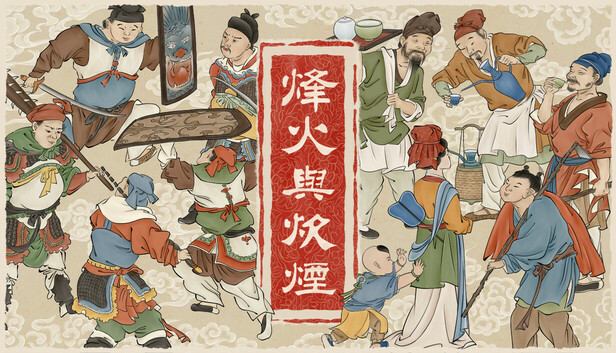 烽火與炊煙